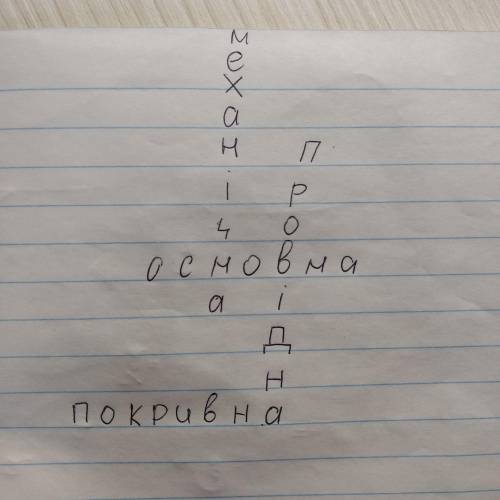 механічна
провідна
основна
покривна